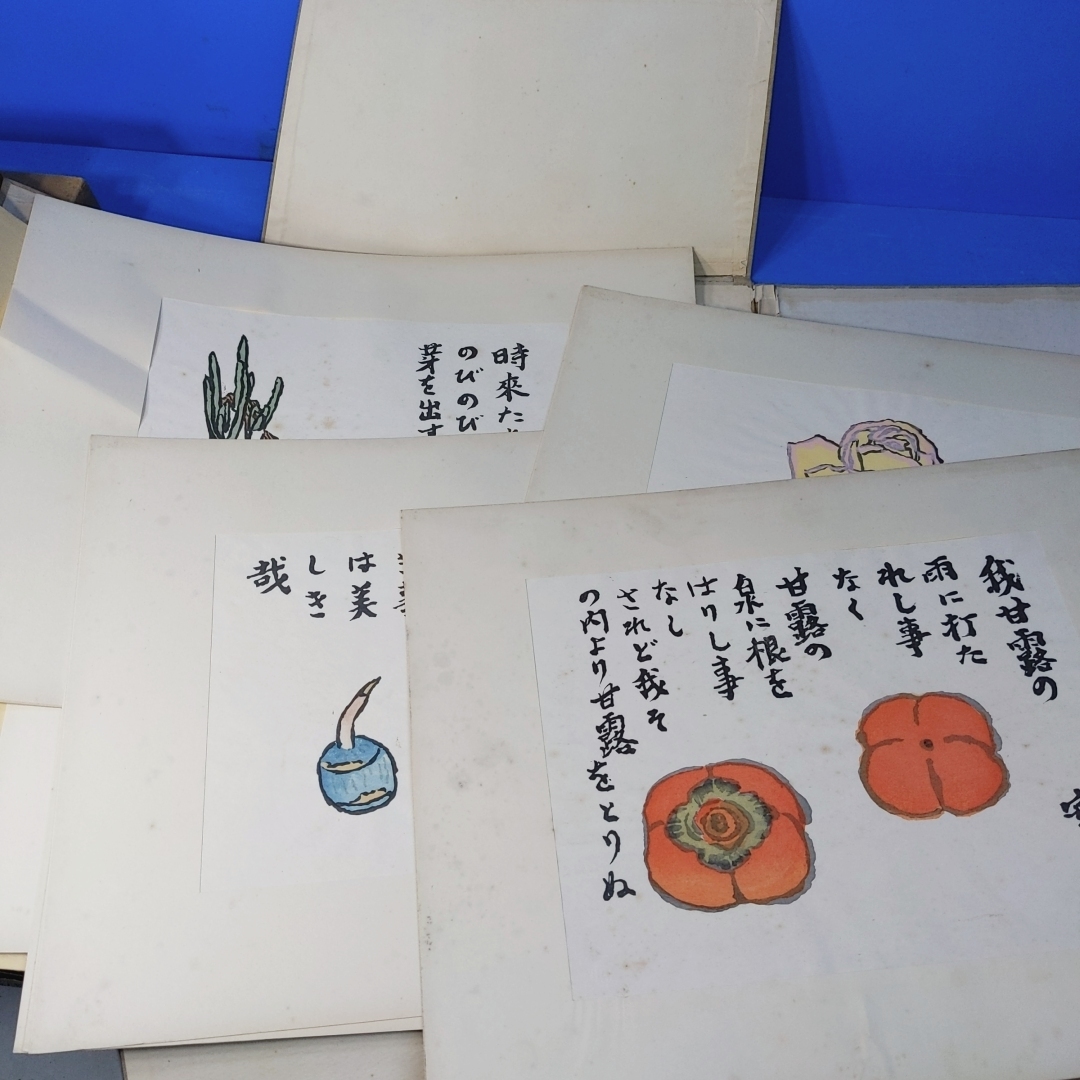 時來た
のびのび
芽を出す
は美
しき
哉
我甘露の
雨に打た
れし事
なく
甘露の
泉に根を
はりし事
なし
されど我そ
の内より甘露をとりぬ